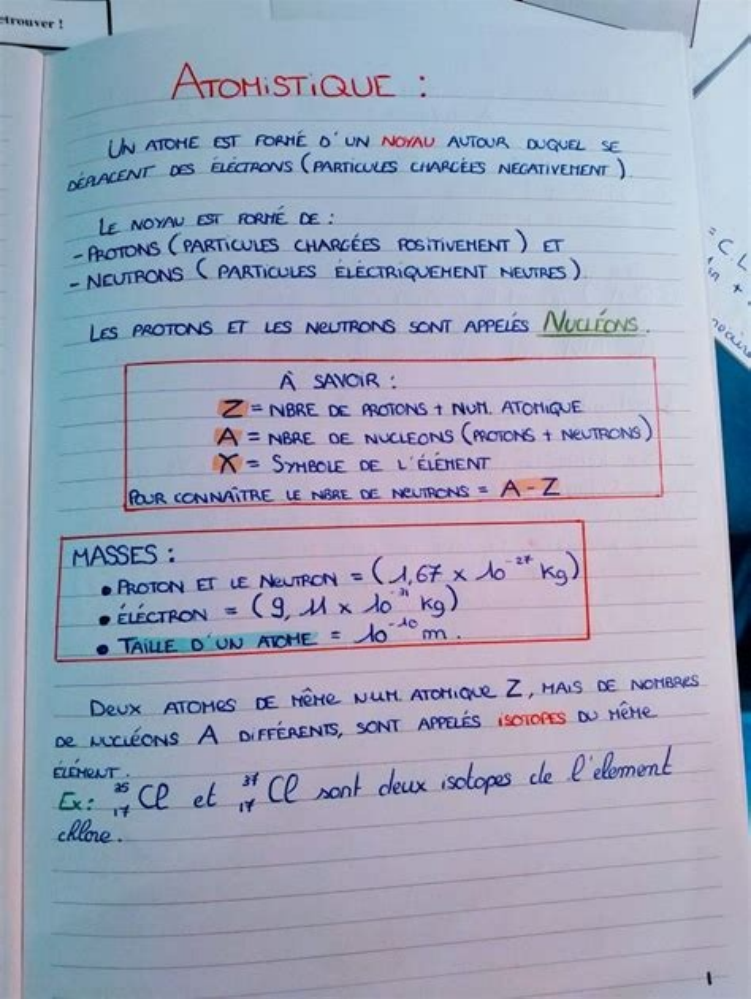 etrouver !
ATOMISTIQUE :
UN ATOME EST FORMÉ D'UN NOYAU AUTOUR DUQUEL SE
DÉPLACENT DES ÉLÉCTRONS (PARTICULES CHARGÉES NEGATIVEMENT)
LE NOYAU EST FORMÉ DE :
- PROTONS (PARTICULES CHARGÉES POSITIVEMENT) ET
- NEUTRONS (PARTICULES ÉLÉCTRIQUEMENT NEUTRES)
LES PROTONS ET LES NEUTRONS SONT APPELÉS NUCLÉONS.
À SAVOIR :
Z = NBRE DE PROTONS + NUM. ATOMIQUE
A = NBRE DE NUCLEONS (PROTONS + NEUTRONS)
X = SYMBOLE DE L'ÉLÉMENT
POUR CONNAÎTRE LE NBRE DE NEUTRONS = A - Z
MASSES :
• PROTON ET LE NEUTRON = (1,67 x 10⁻²⁷ Kg)
• ÉLÉCTRON = (9,11 x 10⁻³¹ Kg)
• TAILLE D'UN ATOME = 10⁻¹⁰ m.
DEUX ATOMES DE MÊME NUM. ATOMIQUE Z, MAIS DE NOMBRES
DE NUCLÉONS A DIFFÉRENTS, SONT APPELÉS ISOTOPES DU MÊME
ÉLÉMENT.
Ex: ³⁵₁₇Cl et ³⁷₁₇Cl sont deux isotopes de l'element
chlore.
1